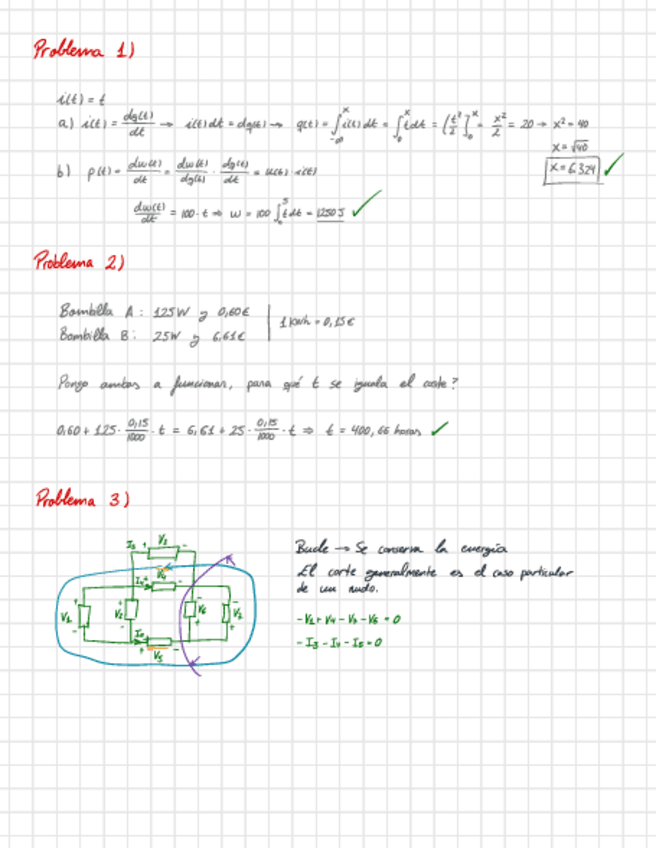 Problema 1)
i(t) = t
a) i(t) = dq(t)/dt → i(t)dt = dq(t) → q(t) = ∫_{-∞}^{x} i(t)dt = ∫_0^x t dt = [t²/2]_0^x = x²/2 = 20 → x² = 40
x = √40
x = 6.324 ✓
b) p(t) = dw(t)/dt = dw(t)/dq(t) · dq(t)/dt = u(t) · i(t)
dw(t)/dt = 100 · t ⇒ w = 100 ∫_0^5 t dt = 1250 J ✓
Problema 2)
Bombilla A: 125W y 0,60€ | 1 kWh = 0,15€
Bombilla B: 25W y 6,61€
Pongo ambas a funcionar, para qué t se iguala el coste?
0,60 + 125 · 0,15/1000 · t = 6,61 + 25 · 0,15/1000 · t ⇒ t = 400,66 horas ✓
Problema 3)
Bucle → Se conserva la energía
El corte generalmente es el caso particular
de un nudo.
- I3 - I4 - I5 = 0
I3 + -
V4
V1
V2
V6
V5